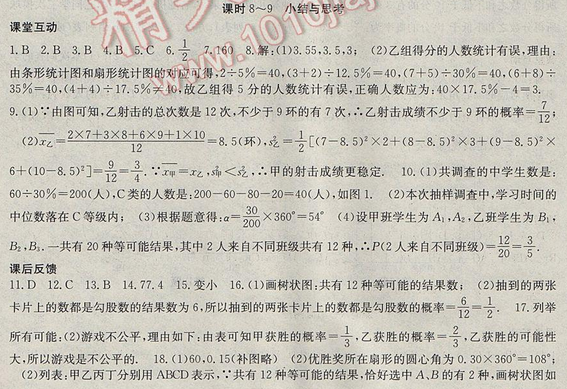 课时8~9 小结与思考
课堂互动
1.B 2.B 3.B 4.B 5.C 6.1/2 7.160 8.解:(1)3.55,3.5,3; (2)乙组得分的人数统计有误,理由:
由条形统计图和扇形统计图的对应可得,2÷5%=40,(3+2)÷12.5%=40,(7+5)÷30%=40,(6+8)÷
35%=40,(4+4)÷17.5%≠40,故乙组得5分的人数统计有误,正确人数应为:40×17.5%-4=3.
9.(1)∵由图可知,乙射击的总次数是12次,不少于9环的有7次,∴乙射击成绩不少于9环的概率=7/12;
(2)x̄乙=(2×7+3×8+6×9+1×10)/12=8.5(环),s²乙=1/2[(7-8.5)²×2+(8-8.5)²×3+(9-8.5)²×
6+(10-8.5)²]=9/12=3/4.∵x̄甲=x̄乙,s²甲<s²乙,∴甲的射击成绩更稳定. 10.(1)共调查的中学生数是:
60÷30%=200(人),C类的人数是:200-60-80-20=40(人),如图1. (2)本次抽样调查中,学习时间的
中位数落在C等级内; (3)根据题意得:α=30/200×360°=54° (4)设甲班学生为A₁,A₂,乙班学生为B₁,
B₂,B₃.一共有20种等可能结果,其中2人来自不同班级共有12种,∴P(2人来自不同班级)=12/20=3/5.
课后反馈
11.D 12.C 13.B 14.77.4 15.变小 16.(1)画树状图:共有12种等可能的结果; (2)抽到的两张
卡片上的数都是勾股数的结果数为6,所以抽到的两张卡片上的数都是勾股数的概率=6/12=1/2. 17.列举
所有可能:(2)游戏不公平,理由如下:由表可知甲获胜的概率=1/3,乙获胜的概率=2/3,乙获胜的可能性
大,所以游戏是不公平的. 18.(1)60,0.15(补图略) (2)优胜奖所在扇形的圆心角为0.30×360°=108°;
(2)列表:甲乙丙丁分别用ABCD表示,∵共有12种等可能的结果,恰好选中A、B的有2种,画树状图如